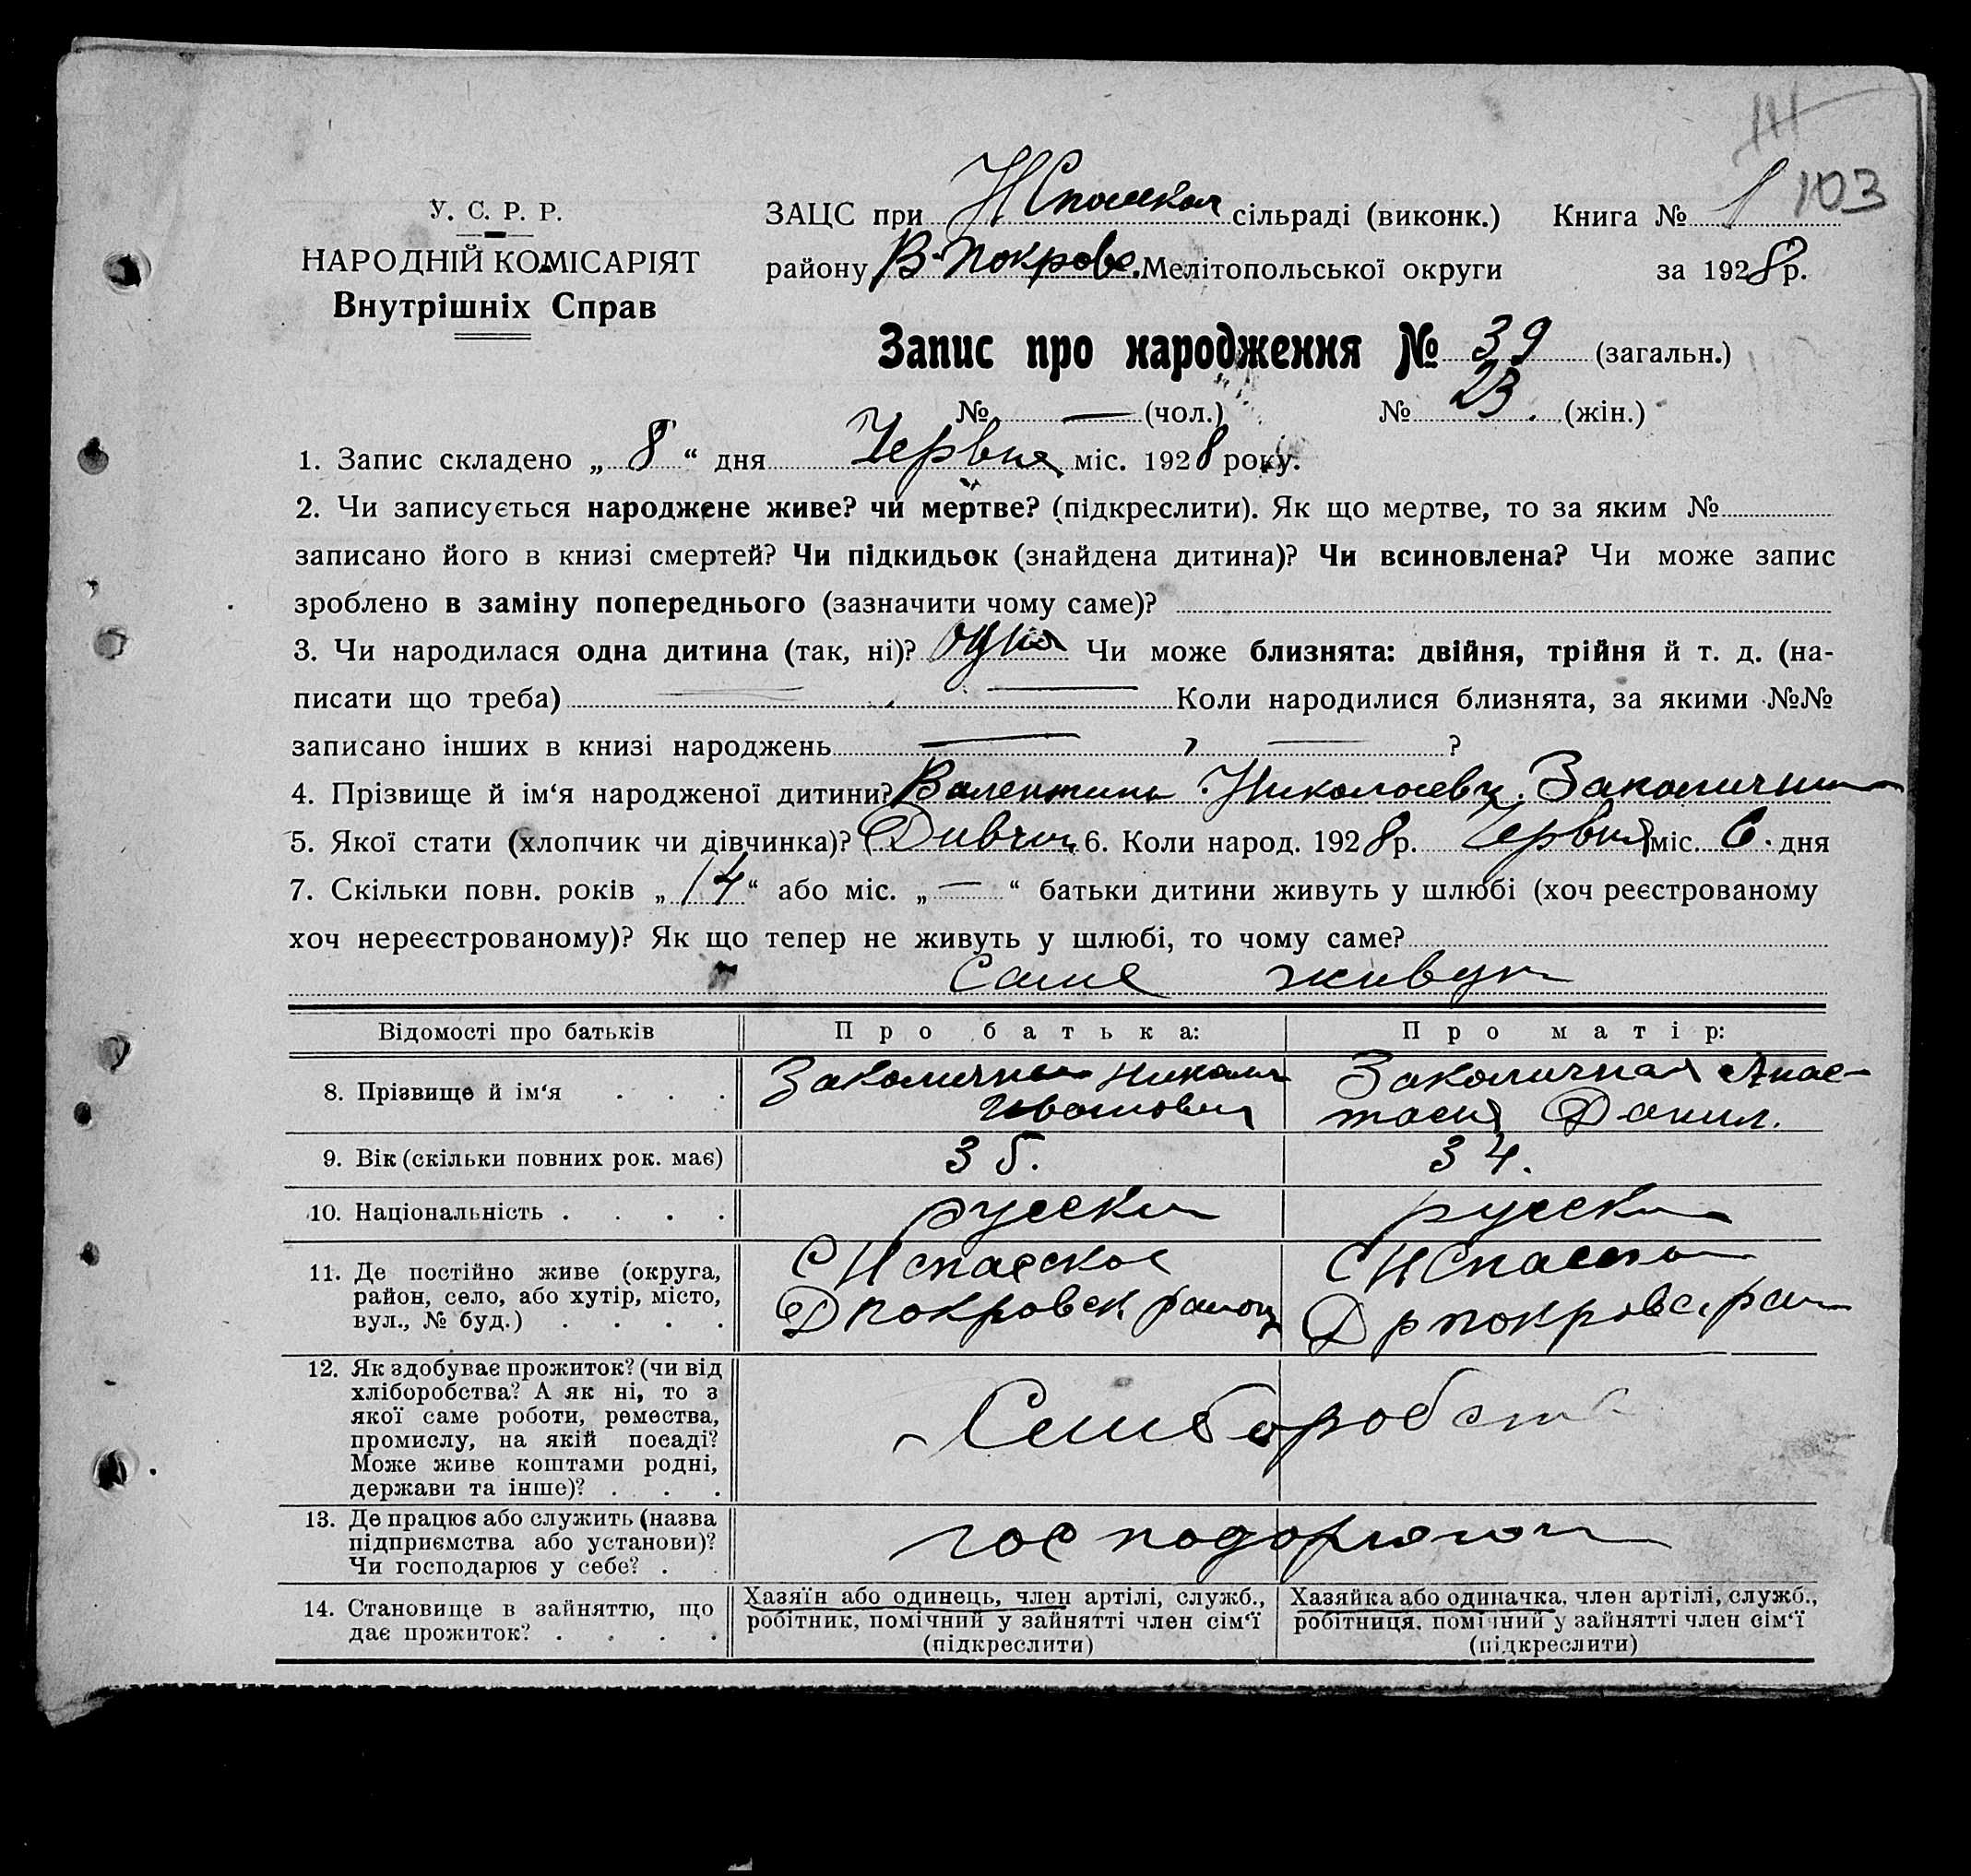 103
У. С. Р. Р.
НАРОДНІЙ КОМІСАРІЯТ
Внутрішніх Справ
ЗАЦС при сільраді (виконк.) Книга № 1
району В-Покровс. Мелітопольської округи за 1928 р.
Запис про народження № 39 (загальн.)
№ — (чол.) № 23. (жін.)
1. Запис складено „ 8 “ дня Червня міс. 1928 року.
2. Чи записується народжене живе? чи мертве? (підкреслити). Як що мертве, то за яким №
записано його в книзі смертей? Чи підкидьок (знайдена дитина)? Чи всиновлена? Чи може запис
зроблено в заміну попереднього (зазначити чому саме)?
3. Чи народилася одна дитина (так, ні)? одна Чи може близнята: двійня, трійня й т. д. (на-
писати що треба) — — Коли народилися близнята, за якими №№
записано інших в книзі народжень — , — ?
4. Прізвище й ім‘я народженої дитини? Валентина Николаевн.
5. Якої стати (хлопчик чи дівчинка)? Дивчин 6. Коли народ. 1928 р. Червня міс. 6. дня
7. Скільки повн. років „ 14 “ або міс. „ — “ батьки дитини живуть у шлюбі (хоч реєстрованому
хоч нереєстрованому)? Як що тепер не живуть у шлюбі, то чому саме?
живут
Відомості про батьків Про батька: Про матір:
8. Прізвище й ім‘я . . . Николай Заколичная Анас-
Иванович тасия Данил.
9. Вік (скільки повних рок. має) 35. 34.
10. Національність . . . . русски русски
11. Де постійно живе (округа, С Н Спаское С Н Спаско
район, село, або хутір, місто, Д покровск район Др покровс. рай
вул., № буд.) . . . .
12. Як здобуває прожиток? (чи від
хліборобства? А як ні, то з
якої саме роботи, ремества,
промислу, на якій посаді?
Може живе коштами родні,
держави та інше)? . . .
13. Де працює або служить (назва
підприємства або установи)?
Чи господарює у себе? . .
14. Становище в зайняттю, що Хазяїн або одинець, член артілі, служб., Хазяйка або одиначка, член артілі, служб.,
дає прожиток? . . . . робітник, помічний у зайнятті член сім‘ї робітниця, помічний у зайнятті член сім‘ї
(підкреслити) (підкреслити)